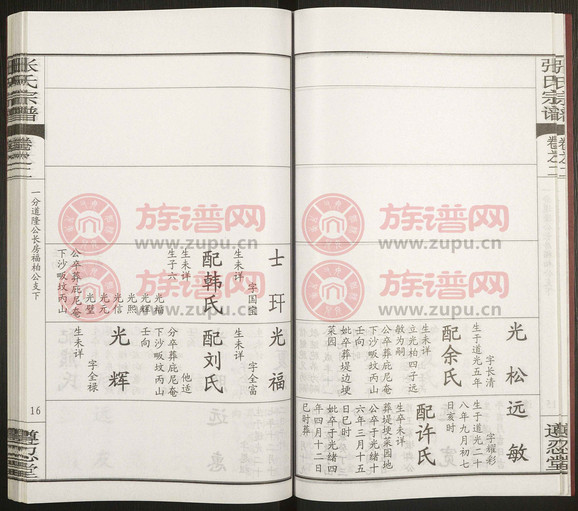 张氏宗谱
卷之二
遵忍堂
光松
字长清
生于道光五年
配余氏
生未详
立光柏四子远
敏为嗣
公卒葬庇尼庵
下沙畈坟丙山
壬向
妣卒葬堤边埂
菜园
远敏
字耀彩
生于道光二十
八年九月初七
日亥时
配许氏
生卒未详
葬堤埂菜园地
公卒于光绪十
六年三月十五
日巳时
妣卒于光绪四
年四月十二日
巳时葬
士玕
字国
生未详
配韩氏
生未详
生子六
光福
光辉
光熙
光信
光元
光璧
公卒葬庇尼庵
下沙畈坟丙山
光福
字全富
生未详
配刘氏
他适
分卒葬庇尼庵
下沙畈坟丙山
壬向
光辉
字全禄
生未详
张氏宗谱
卷之二
一分道隆公长房福柏公支下
16
遵忍堂
族谱网
www.zupu.cn
族谱网
www.zupu.cn
族谱网
www.zupu.cn
族谱网
www.zupu.cn